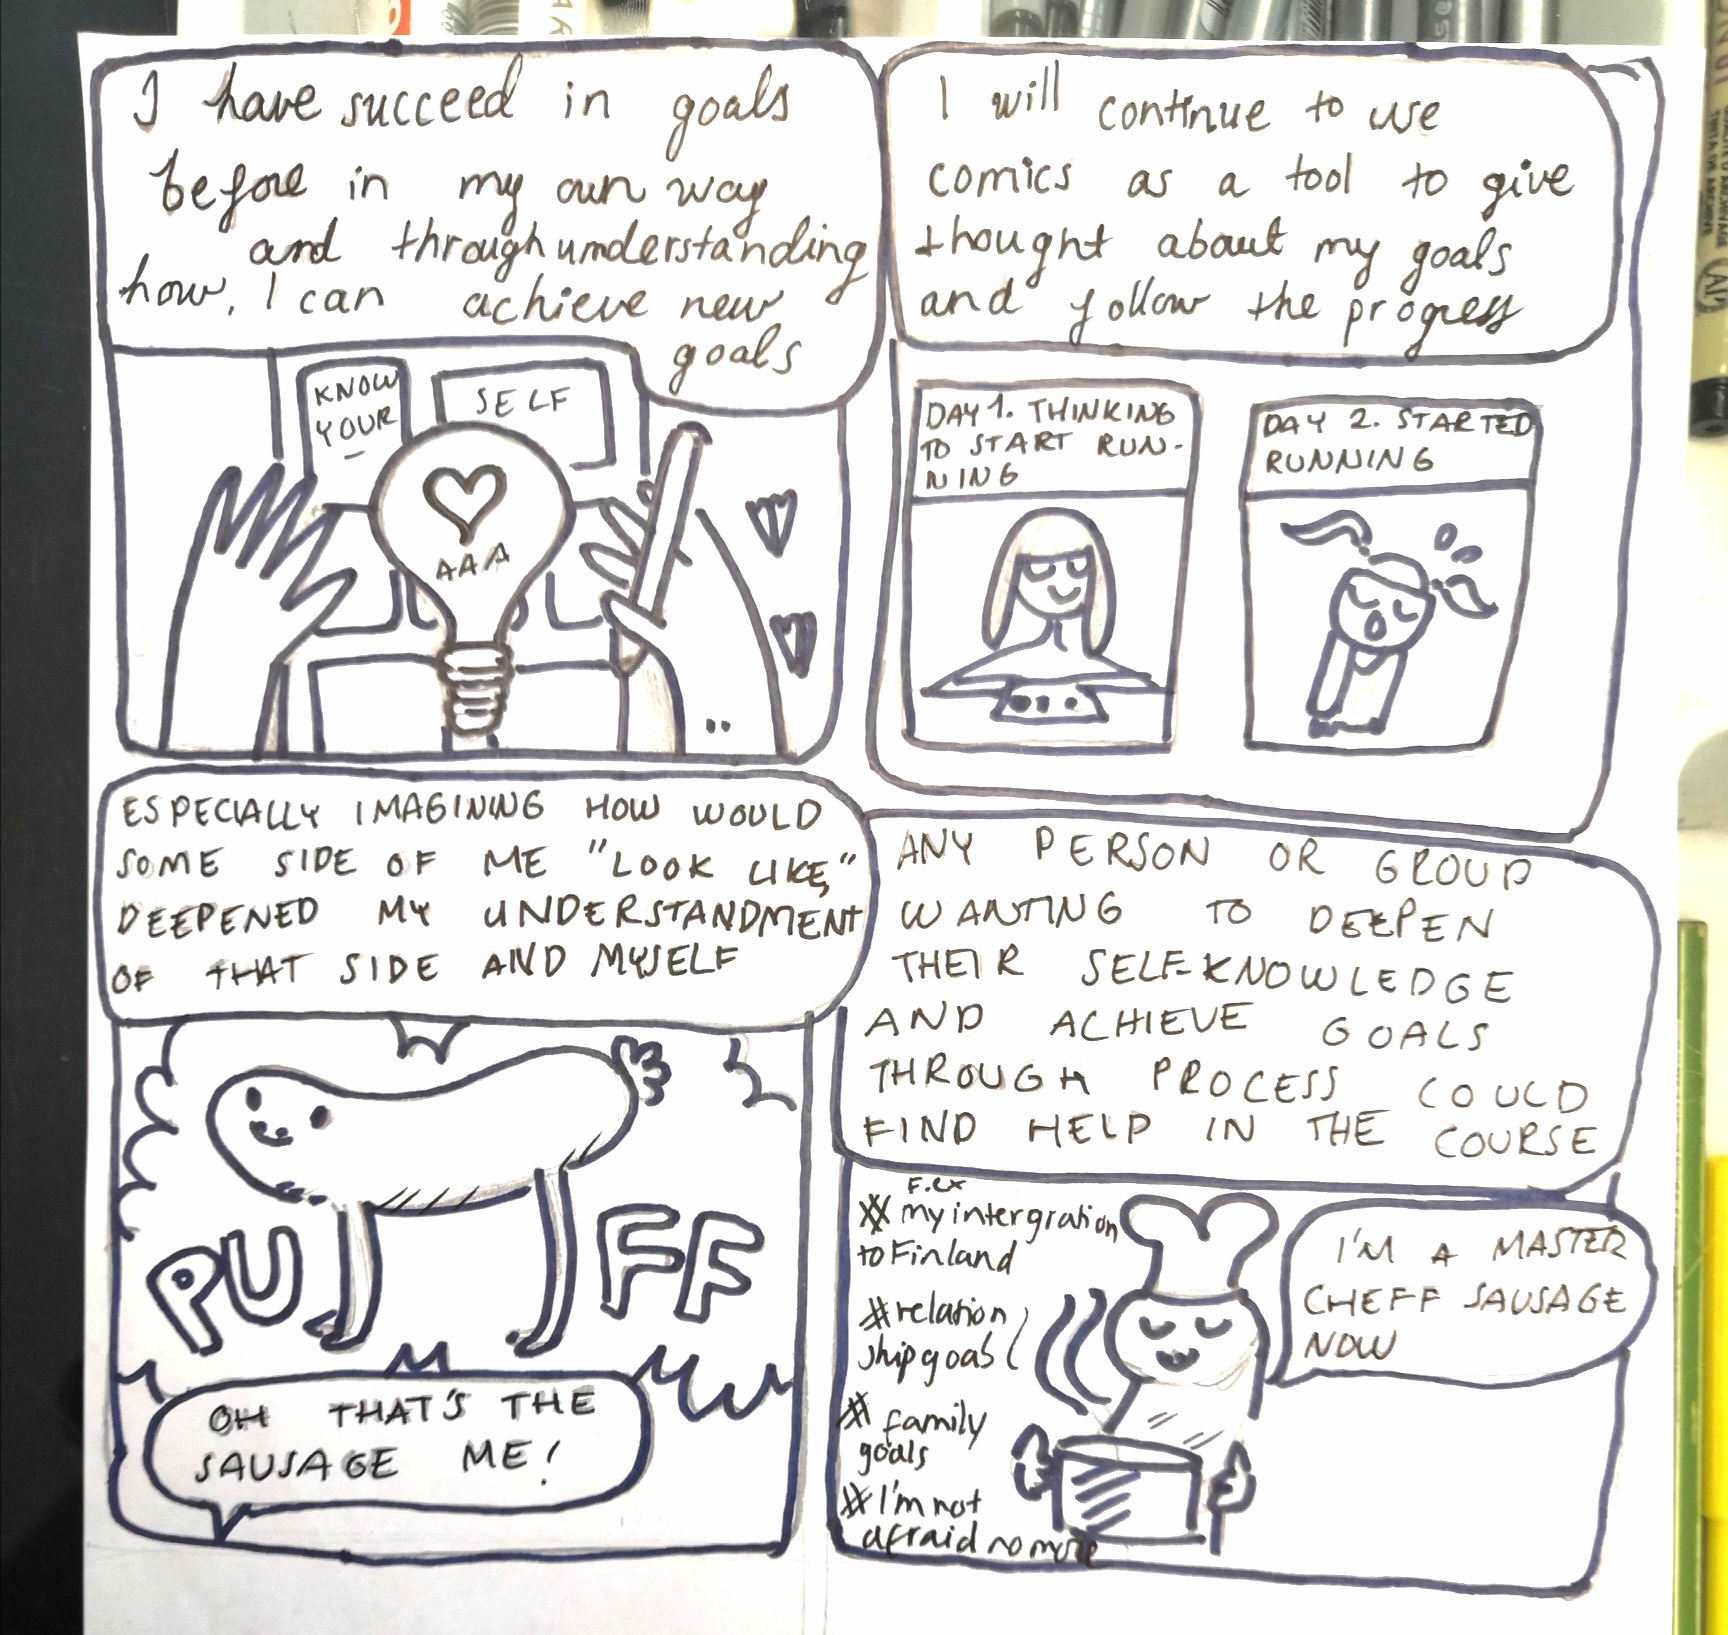 I have succeed in goals
before in my own way
and through understanding
how, I can achieve new
goals
KNOW
YOUR
SELF
AAA
I will continue to use
comics as a tool to give
thought about my goals
and follow the progress
DAY 1. THINKING
TO START RUN-
NING
DAY 2. STARTED
RUNNING
ESPECIALLY IMAGINING HOW WOULD
SOME SIDE OF ME "LOOK LIKE,"
DEEPENED MY UNDERSTANDMENT
OF THAT SIDE AND MYSELF
PUFF
OH THAT'S THE
SAUSAGE ME!
ANY PERSON OR GROUP
WANTING TO DEEPEN
THEIR SELF-KNOWLEDGE
AND ACHIEVE GOALS
THROUGH PROCESS COULD
FIND HELP IN THE COURSE
F.ex
# my intergration
to Finland
# relation
ship goals
# family
goals
# I'm not
afraid no more
I'M A MASTER
CHEFF SAUSAGE
NOW